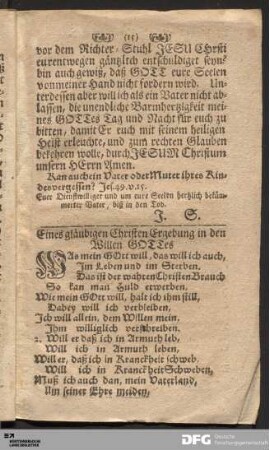 (11)
vor dem Richter-Stuhl JESU Christi
eurentwegen gäntzlich entschuldiget seyn/
bin auch gewiß, daß GOTT eure Seelen
von meiner Hand nicht fordern wird. Un-
terdessen aber will ich als ein Vater nicht ab-
lassen, die unendliche Barmhertzigkeit mei-
nes GOTTes Tag und Nacht für euch zu
bitten, damit Er euch mit seinem heiligen
Geist erleuchte, und zum rechten Glauben
bekehren wolle, durch JESUM Christum
unsern HErrn Amen.
Kan auch ein Vater oder Muter ihres Kin-
des vergessen? Jes. 49. v. 15.
Euer Dienstwilliger und um eure Seelen hertzlich beküm-
merter Vater, biß in den Tod.
J. S.
Eines gläubigen Christen Ergebung in den
Willen GOTTes
WAs mein GOtt will, das will ich auch,
Im Leben und im Sterben,
Das ist der wahren Christen Brauch
So kan man Huld erwerben.
Wie mein GOtt will, halt ich ihm still,
Dabey will ich verbleiben,
Ich will allein, dem Willen mein,
Ihm williglich verschreiben.
2. Will er daß ich in Armuth leb,
Will ich in Armuth leben,
Will er, daß ich in Kranckheit schweb,
Will ich in Kranckheit Schweben,
Muß ich auch dan, mein Vaterland,
Um seiner Ehre meiden,
DFG Deutsche
Forschungsgemeinschaft